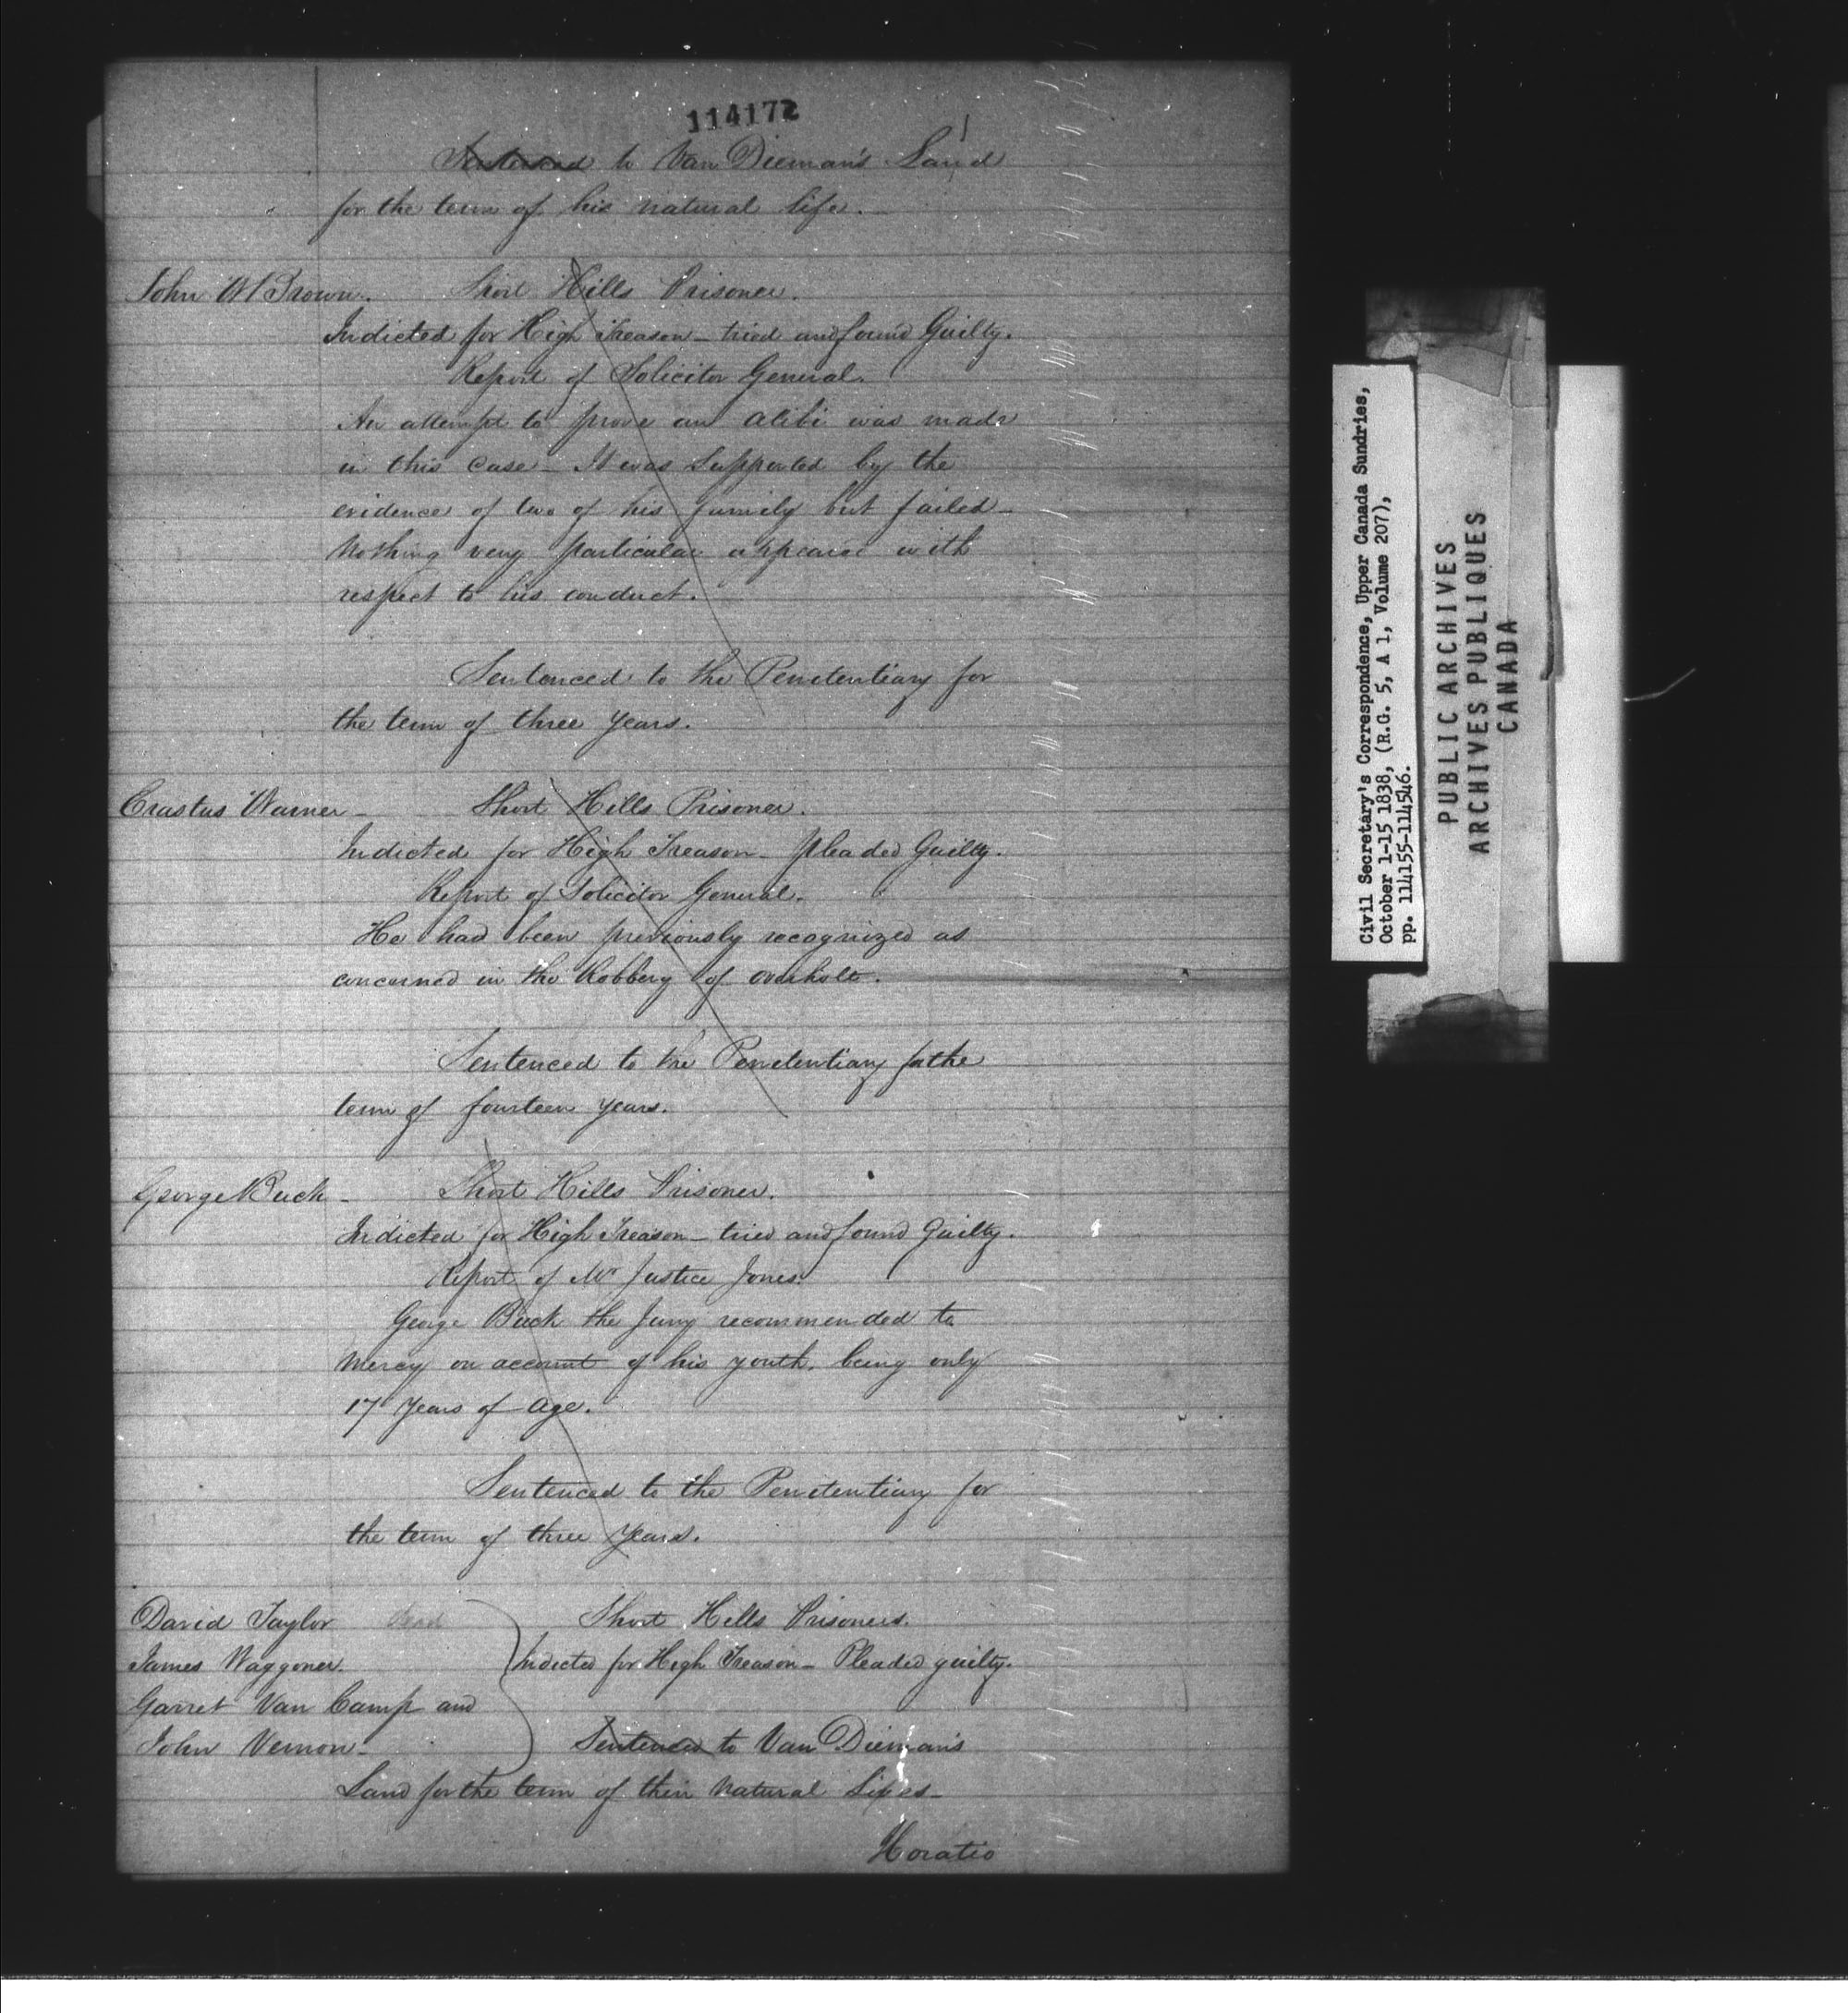 114172
Sentenced to Van Dieman's Land
for the term of his natural life.
John W Brown. Short Hills Prisoner.
Indicted for High Treason - tried and found Guilty.
Report of Solicitor General.
An attempt to prove an alibi was made
in this case - It was supported by the
evidence of two of his family but failed -
Nothing very particular appears with
respect to his conduct.
Sentenced to the Penetentiary for
the term of three years.
Erastus Warner - Short Hills Prisoner.
Indicted for High Treason - pleaded Guilty.
Report of Solicitor General.
He had been previously recognized as
concerned in the Robbery of Overholt.
Sentenced to the Penetentiary for the
term of fourteen years.
George Buck - Short Hills Prisoner.
Indicted for High Treason - tried and found Guilty.
Report of Mr Justice Jones.
George Buck the Jury recommended to
mercy on account of his youth, being only
17 years of age.
Sentenced to the Penetentiary for
the term of three years.
David Taylor dead Short Hills Prisoners.
James Waggoner. Indicted for High Treason - Pleaded guilty.
Garret Van Camp and
John Vernon - Sentenced to Van Dieman's
Land for the term of their Natural Lives -
Horatio
Civil Secretary's Correspondence, Upper Canada Sundries,
October 1-15 1838, (R.G. 5, A 1, Volume 207),
pp. 114155-114546.
PUBLIC ARCHIVES
ARCHIVES PUBLIQUES
CANADA